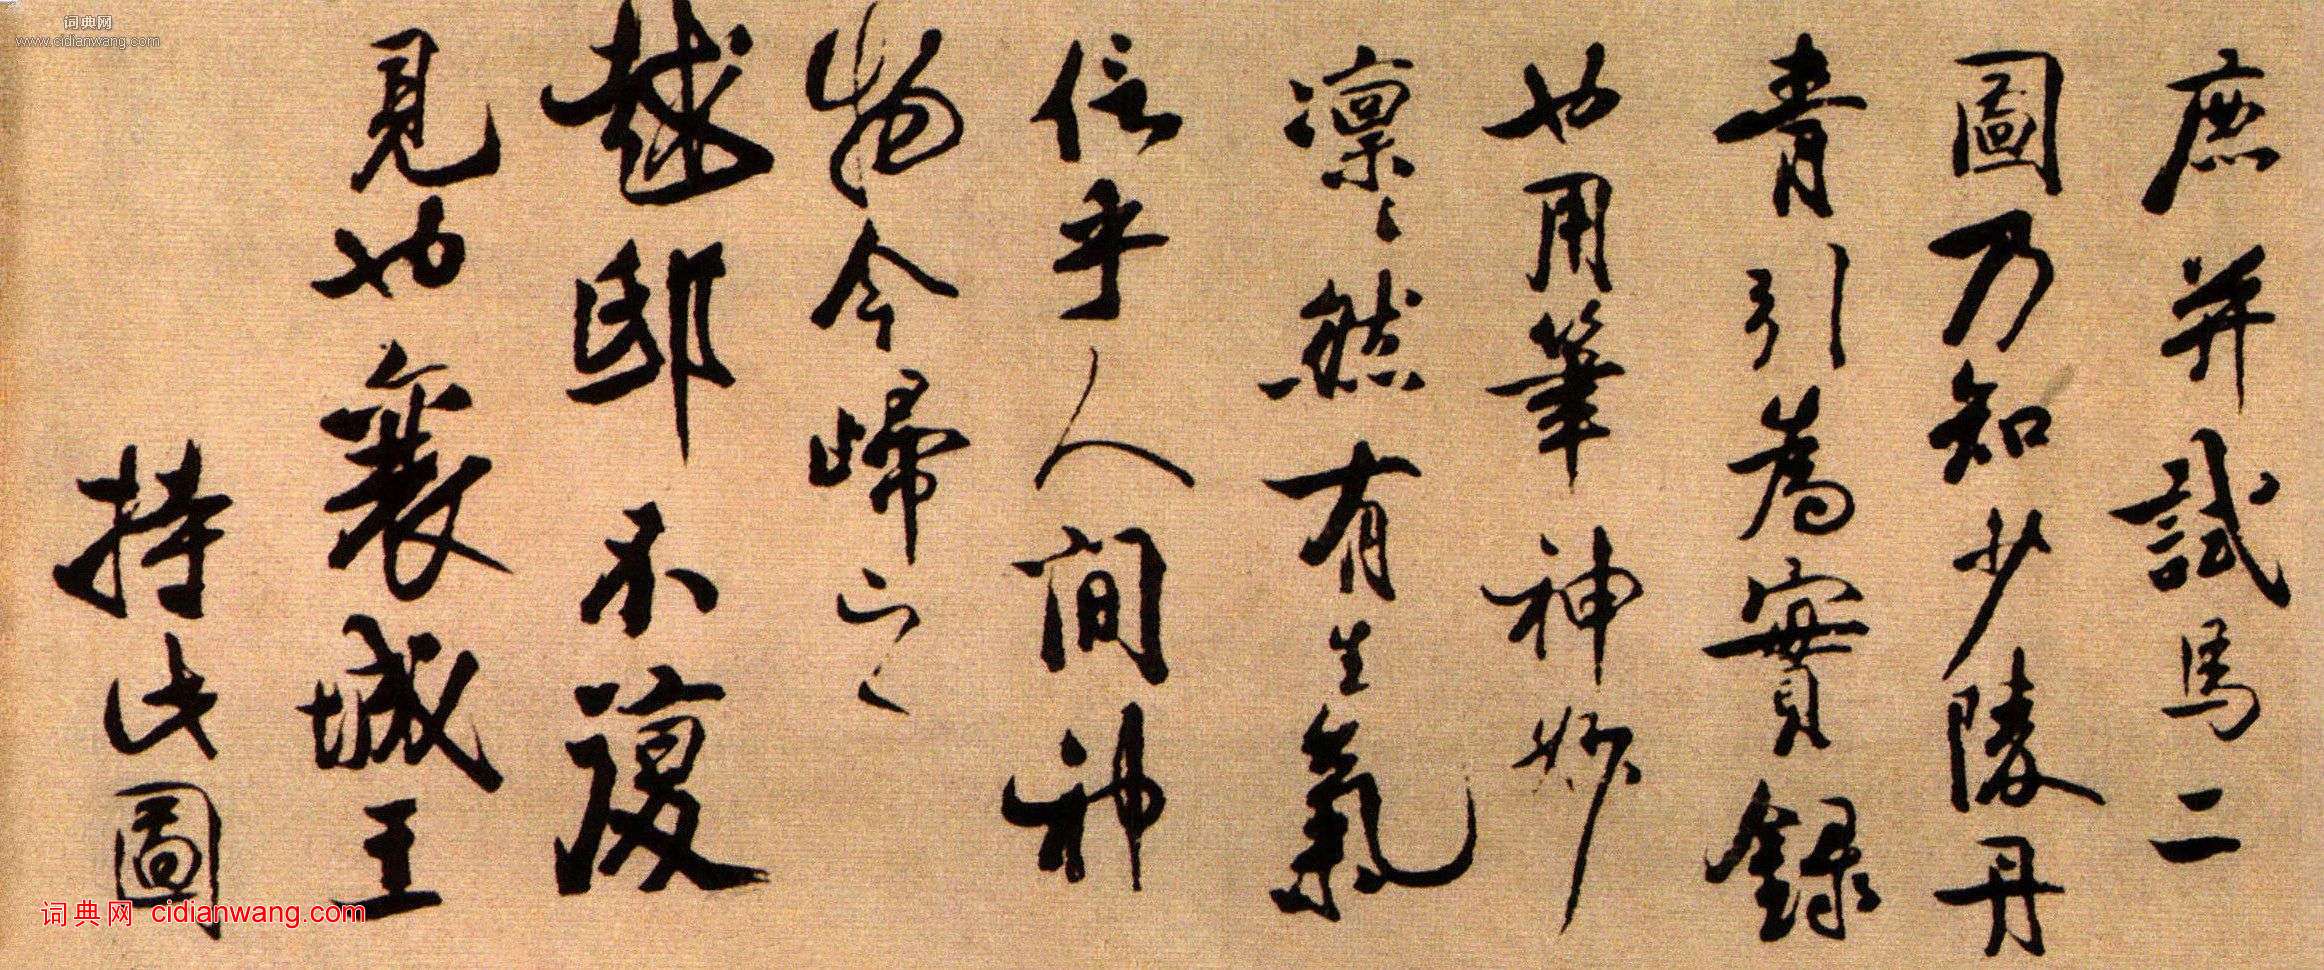 庶并試馬二
圖乃知少陵丹
青引爲實錄
也用筆神妙
凛凛然有生氣
信乎人間神
物今歸之
越邸不復
見也襄城王
持此圖
词典网
www.cidianwang.com
词典网 cidianwang.com